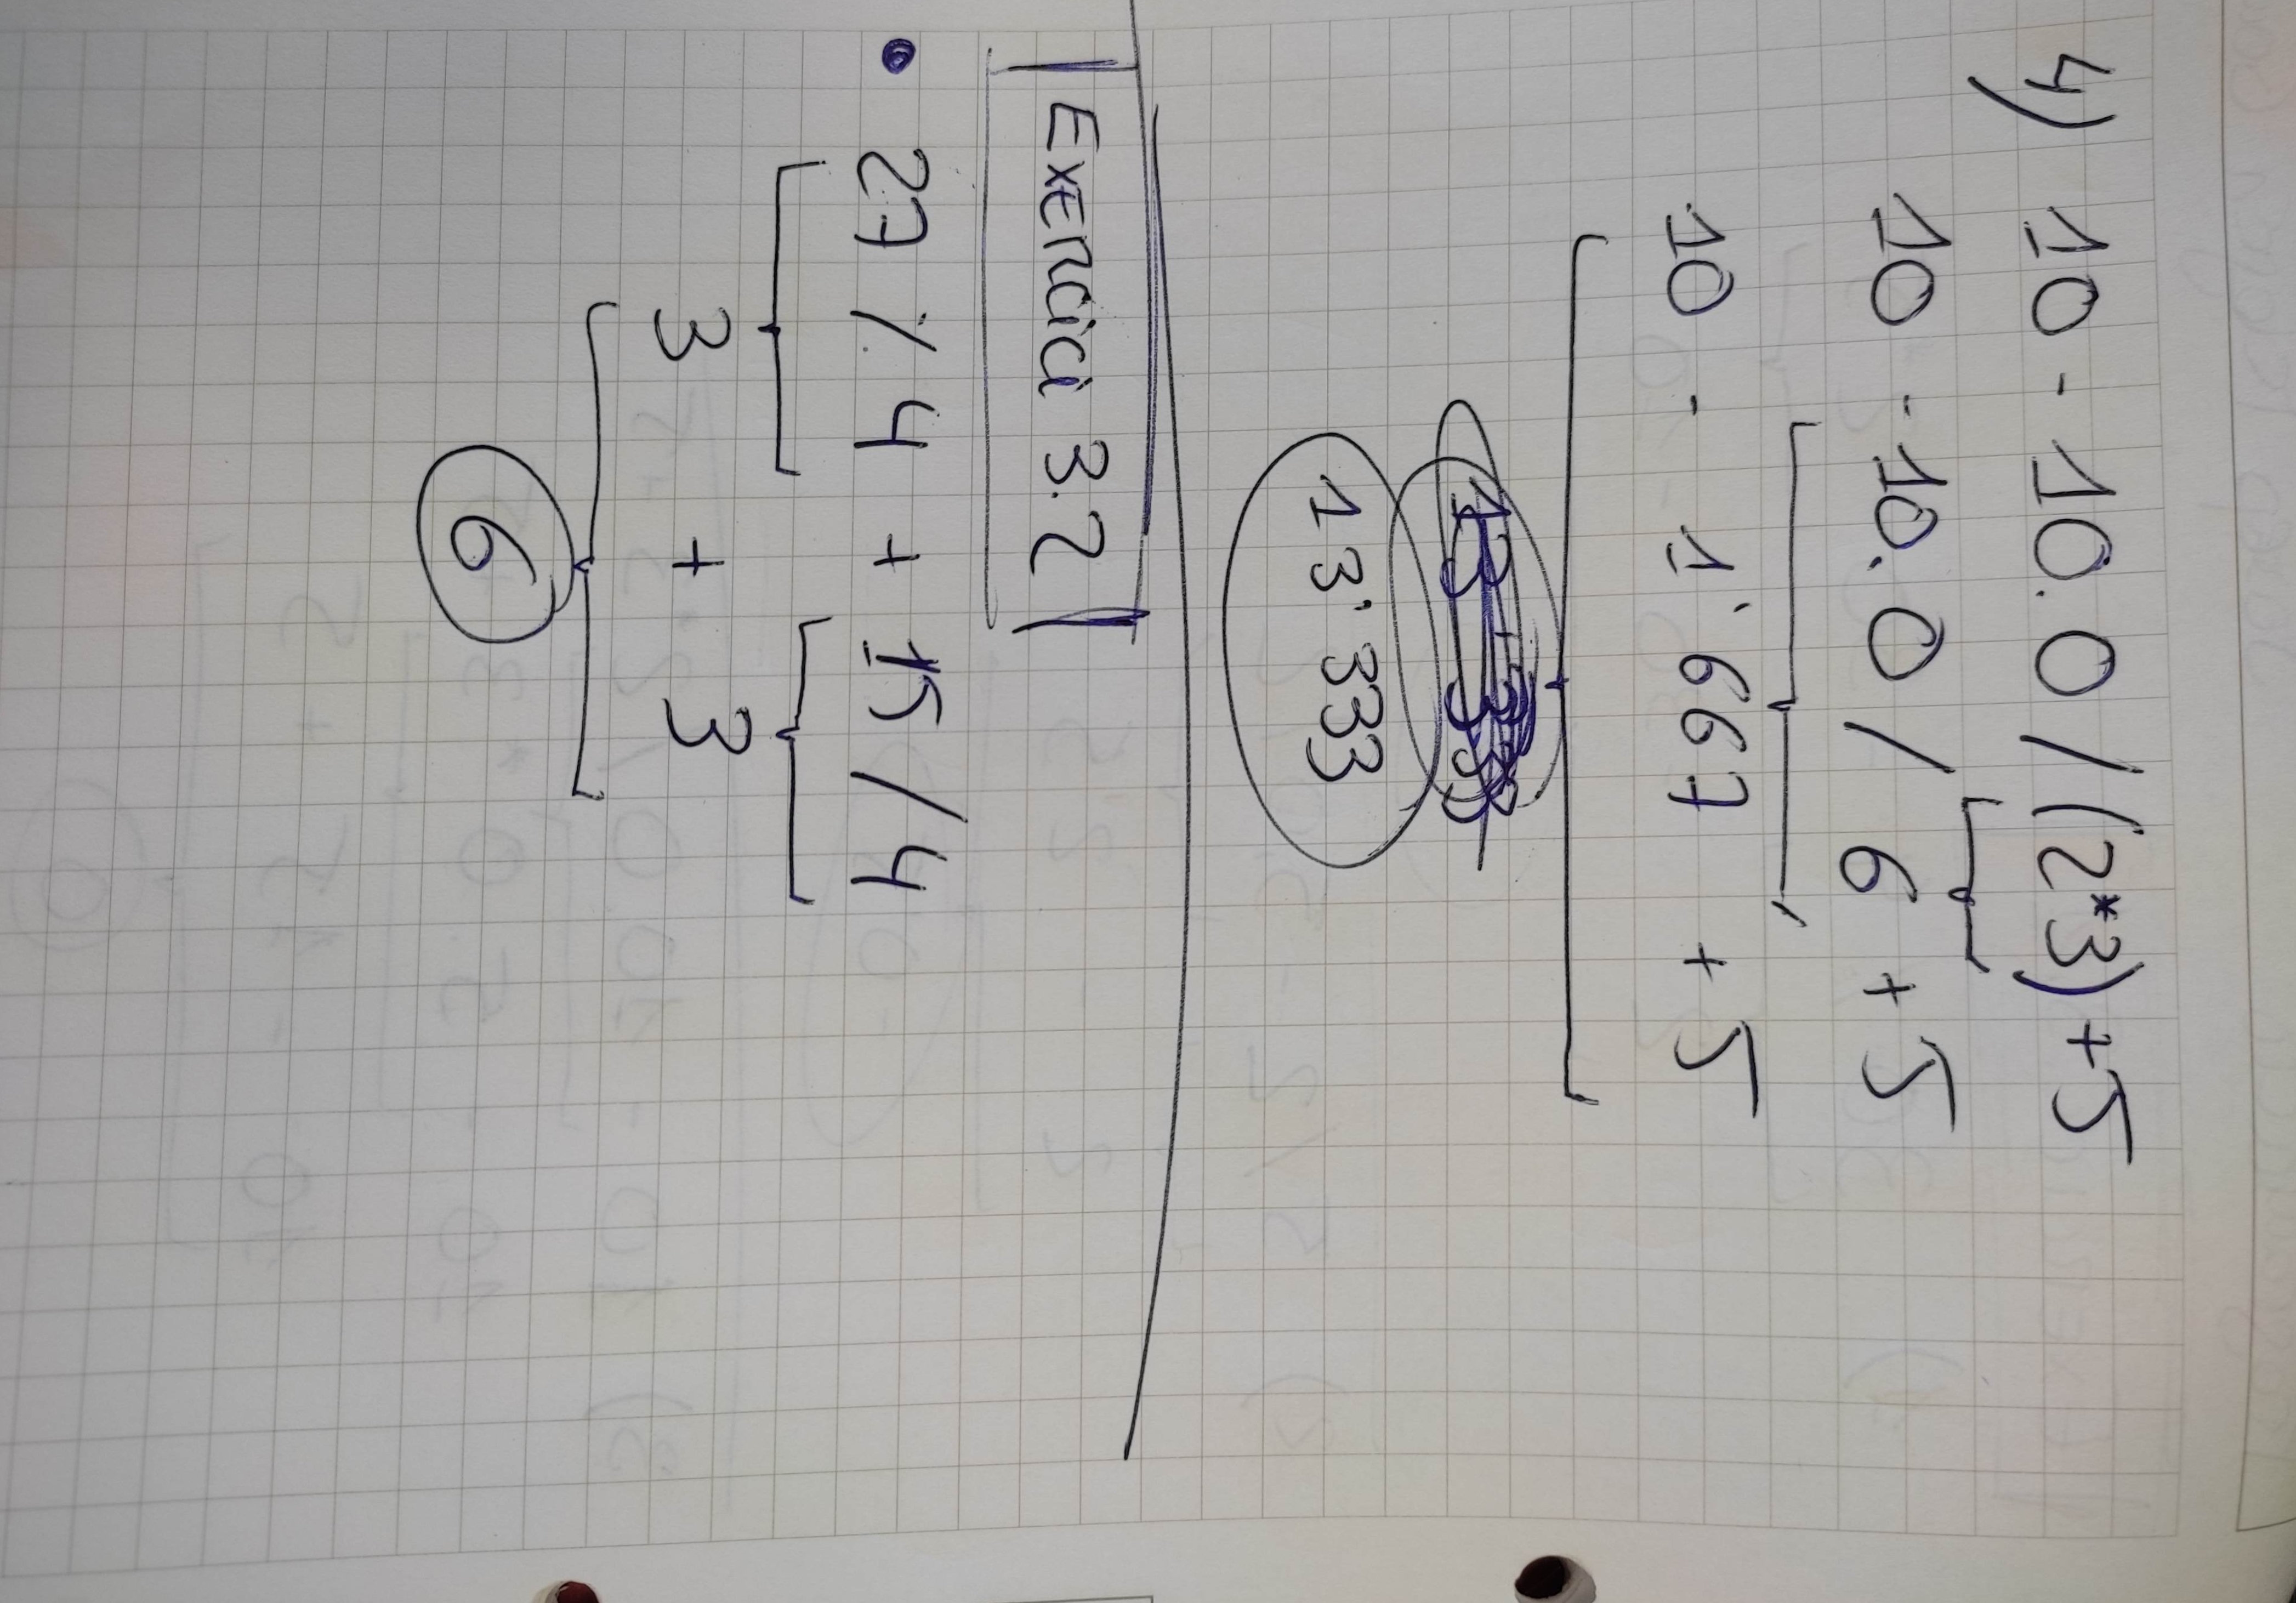 4) 10 - 10.0 / (2*3) + 5
10 - 10.0 / 6 + 5
10 - 1'667 + 5
13'333
Exercici 3.2
• 27 % 4 + 15 / 4
3 + 3
6